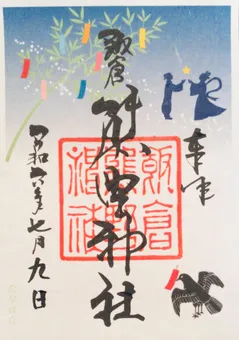 奉拝
飯倉
熊野神社
令和六年七月九日
飯倉
熊野
神社